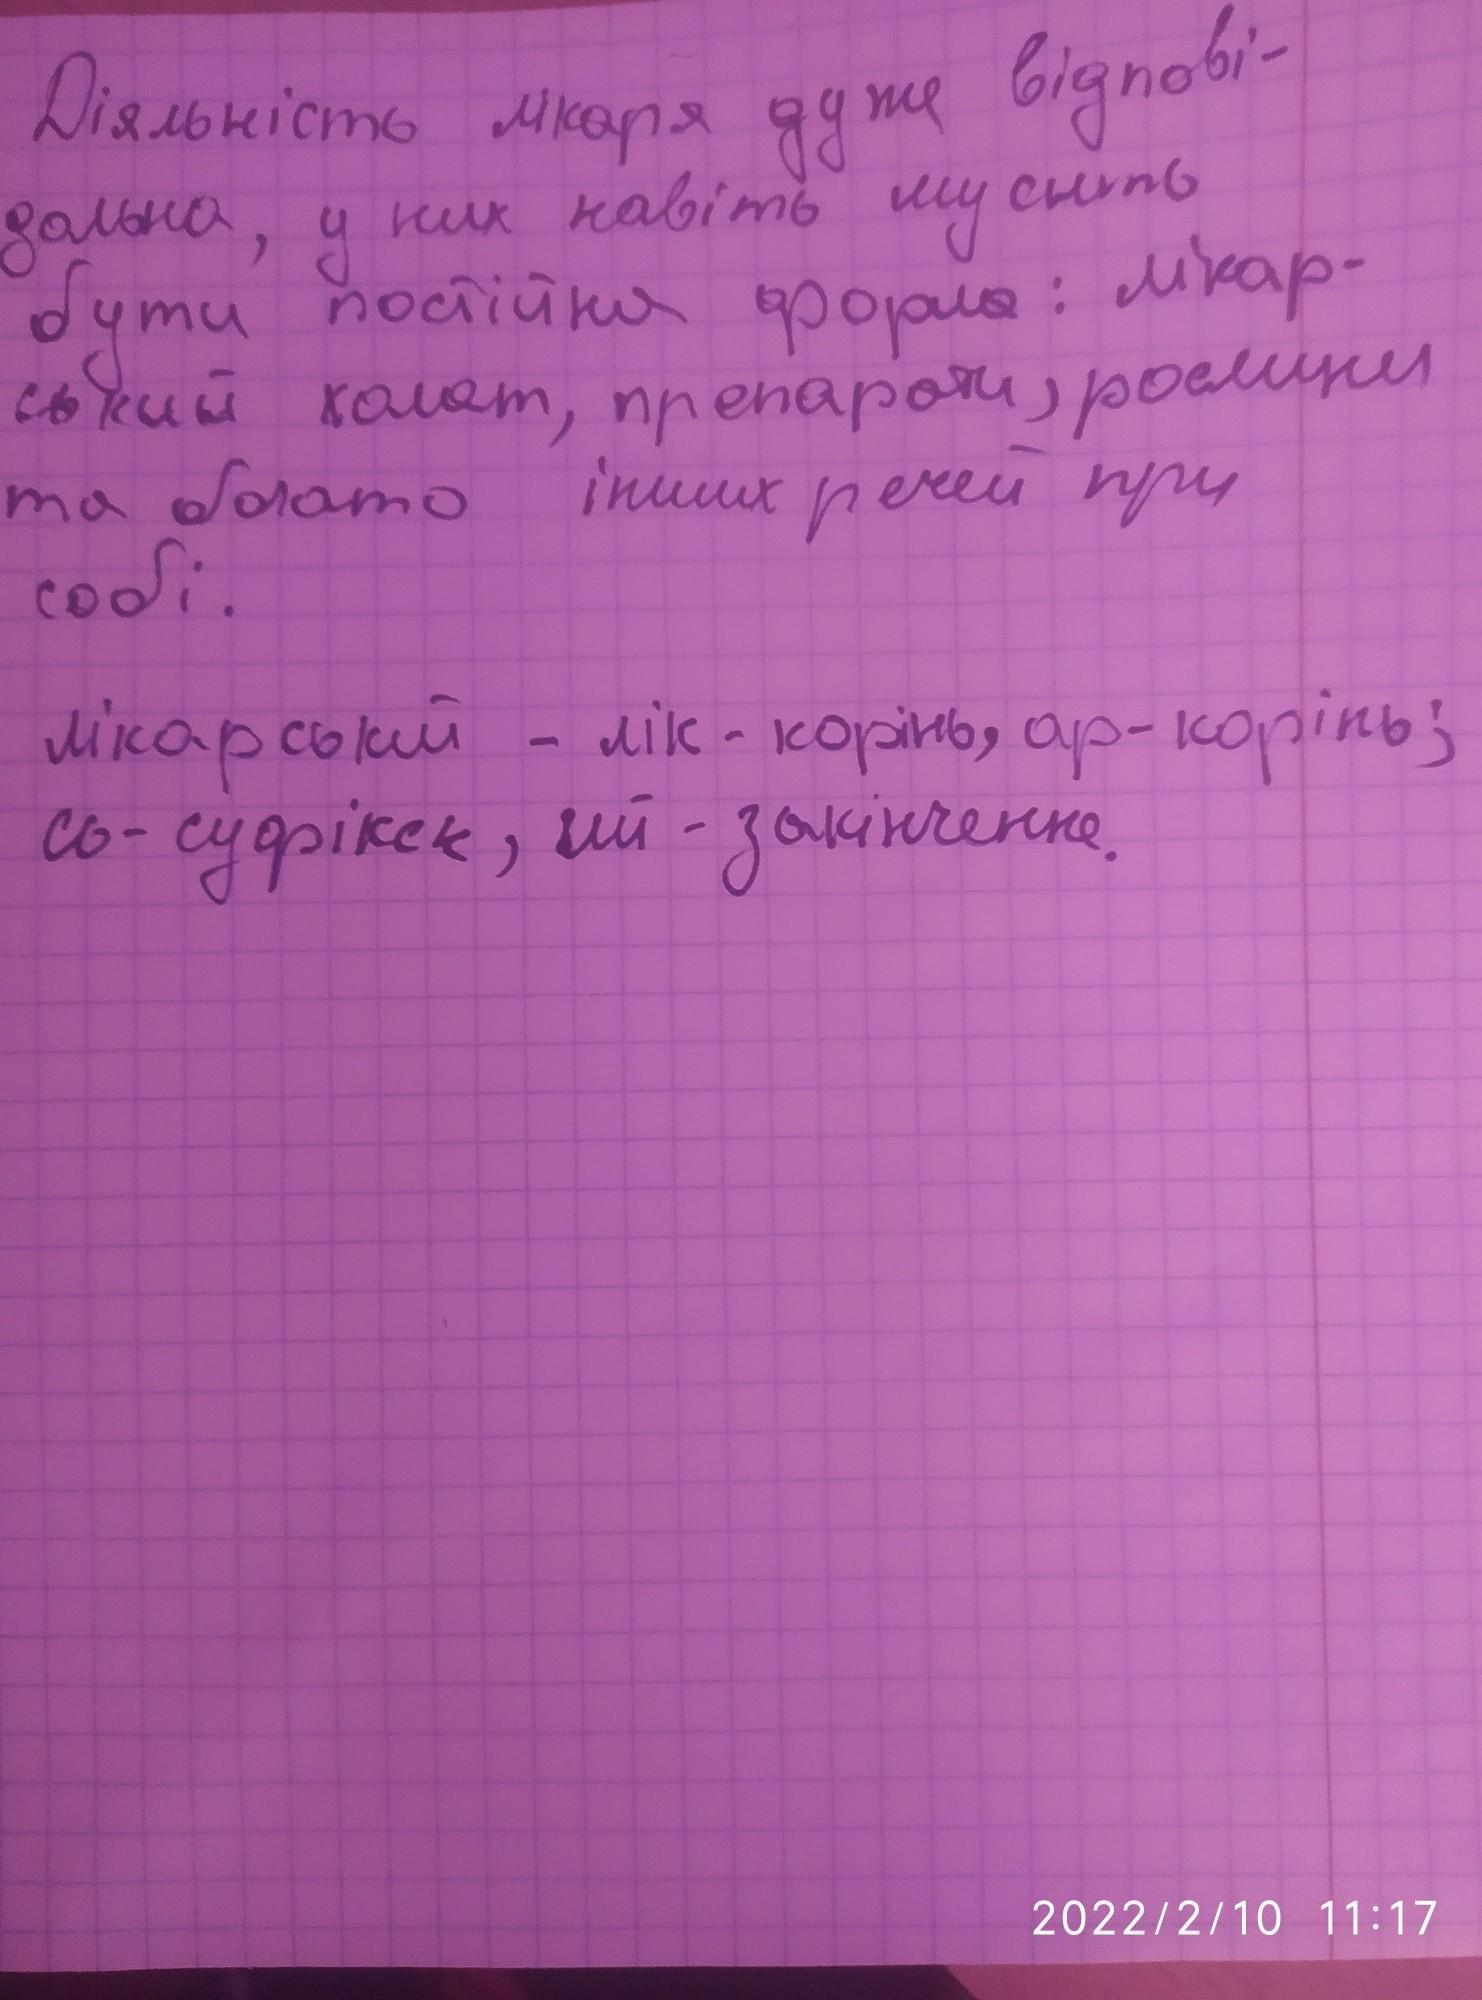 Діяльність лікаря дуже відпові-
дальна, у них навіть мусить
бути постійна форма: лікар-
ський халат, препарати, рослини
та багато інших речей при
собі.
лікарський - лік - корінь, ар - корінь;
сь - суфікск, ий - закінчення.
2022/2/10 11:17